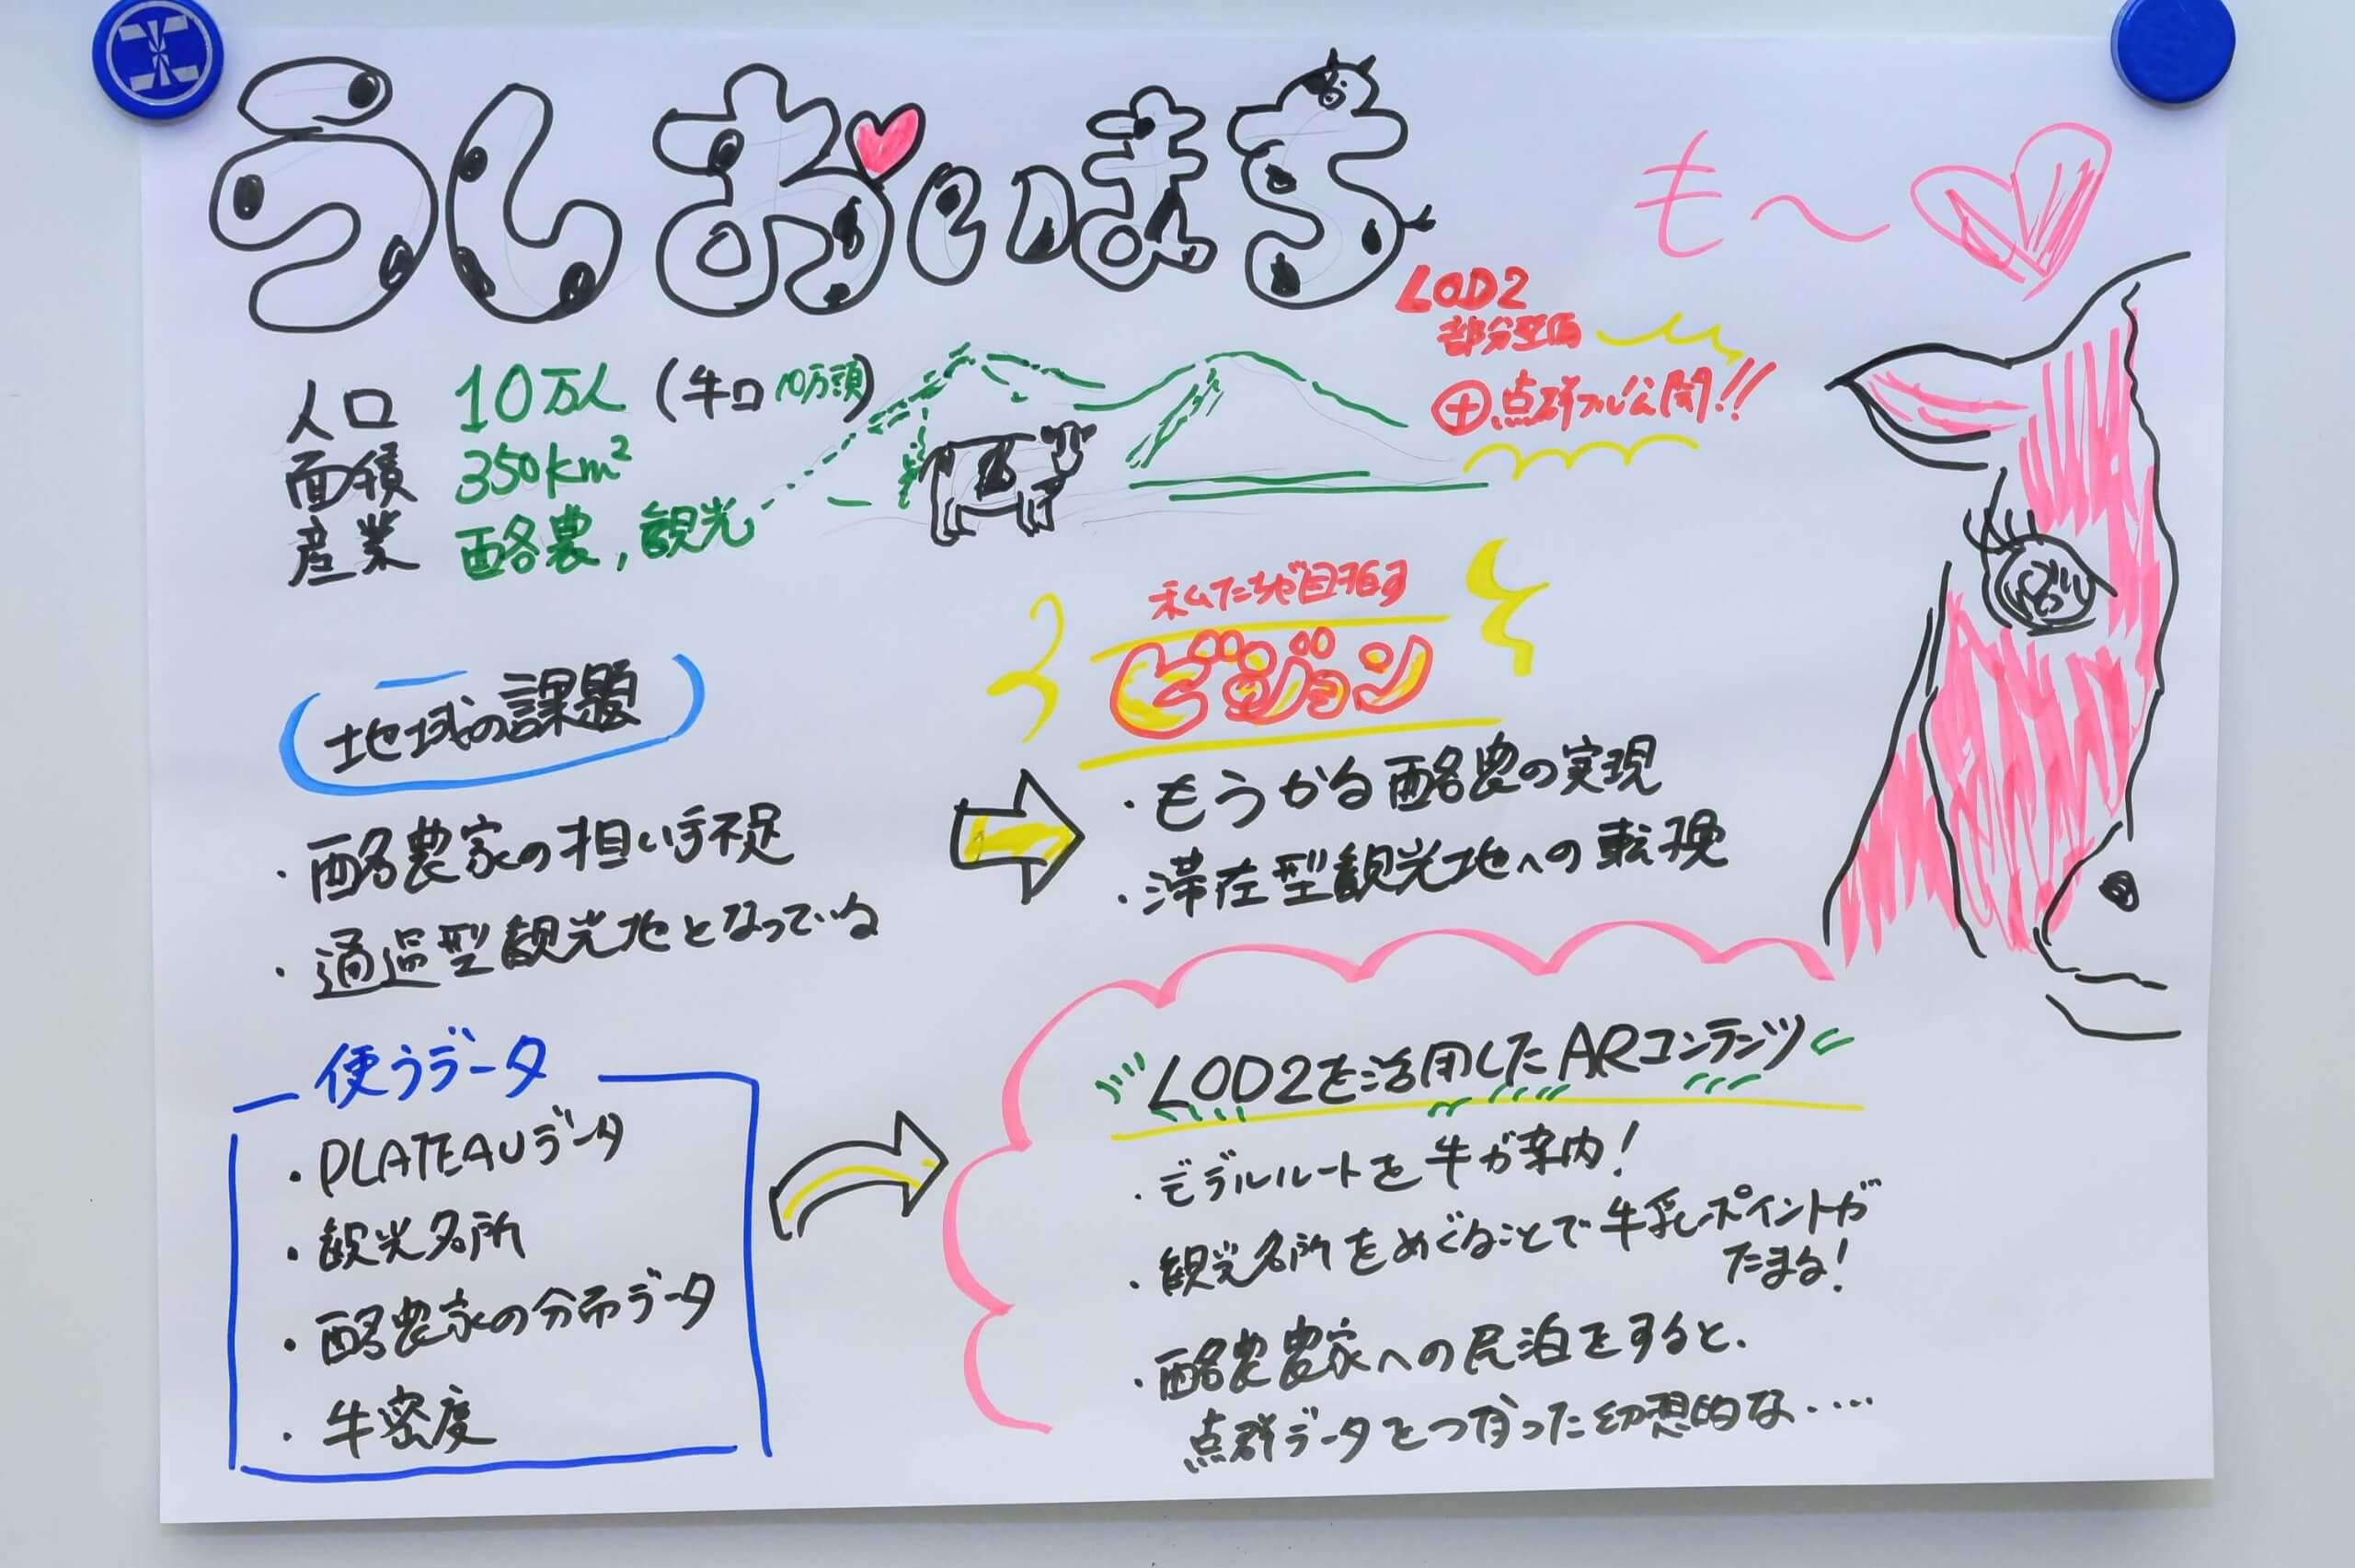 うしおいまち
も〜
LOD2
部分整備
⊕点群フル公開!!
人口 10万人 (牛口 10万頭)
面積 350km²
産業 酪農, 観光
地域の課題
・酪農家の担い手不足
・通過型観光地となっている
私たちが目指す
ビジョン
・もうかる酪農の実現
・滞在型観光地への転換
使うデータ
・PLATEAUデータ
・観光名所
・酪農家の分布データ
・牛密度
LOD2を活用したARコンテンツ
・モデルルートを牛が案内!
・観光名所をめぐることで牛乳ポイントが
たまる!
・酪農農家への民泊をすると、
点群データをつかった幻想的な・・・・